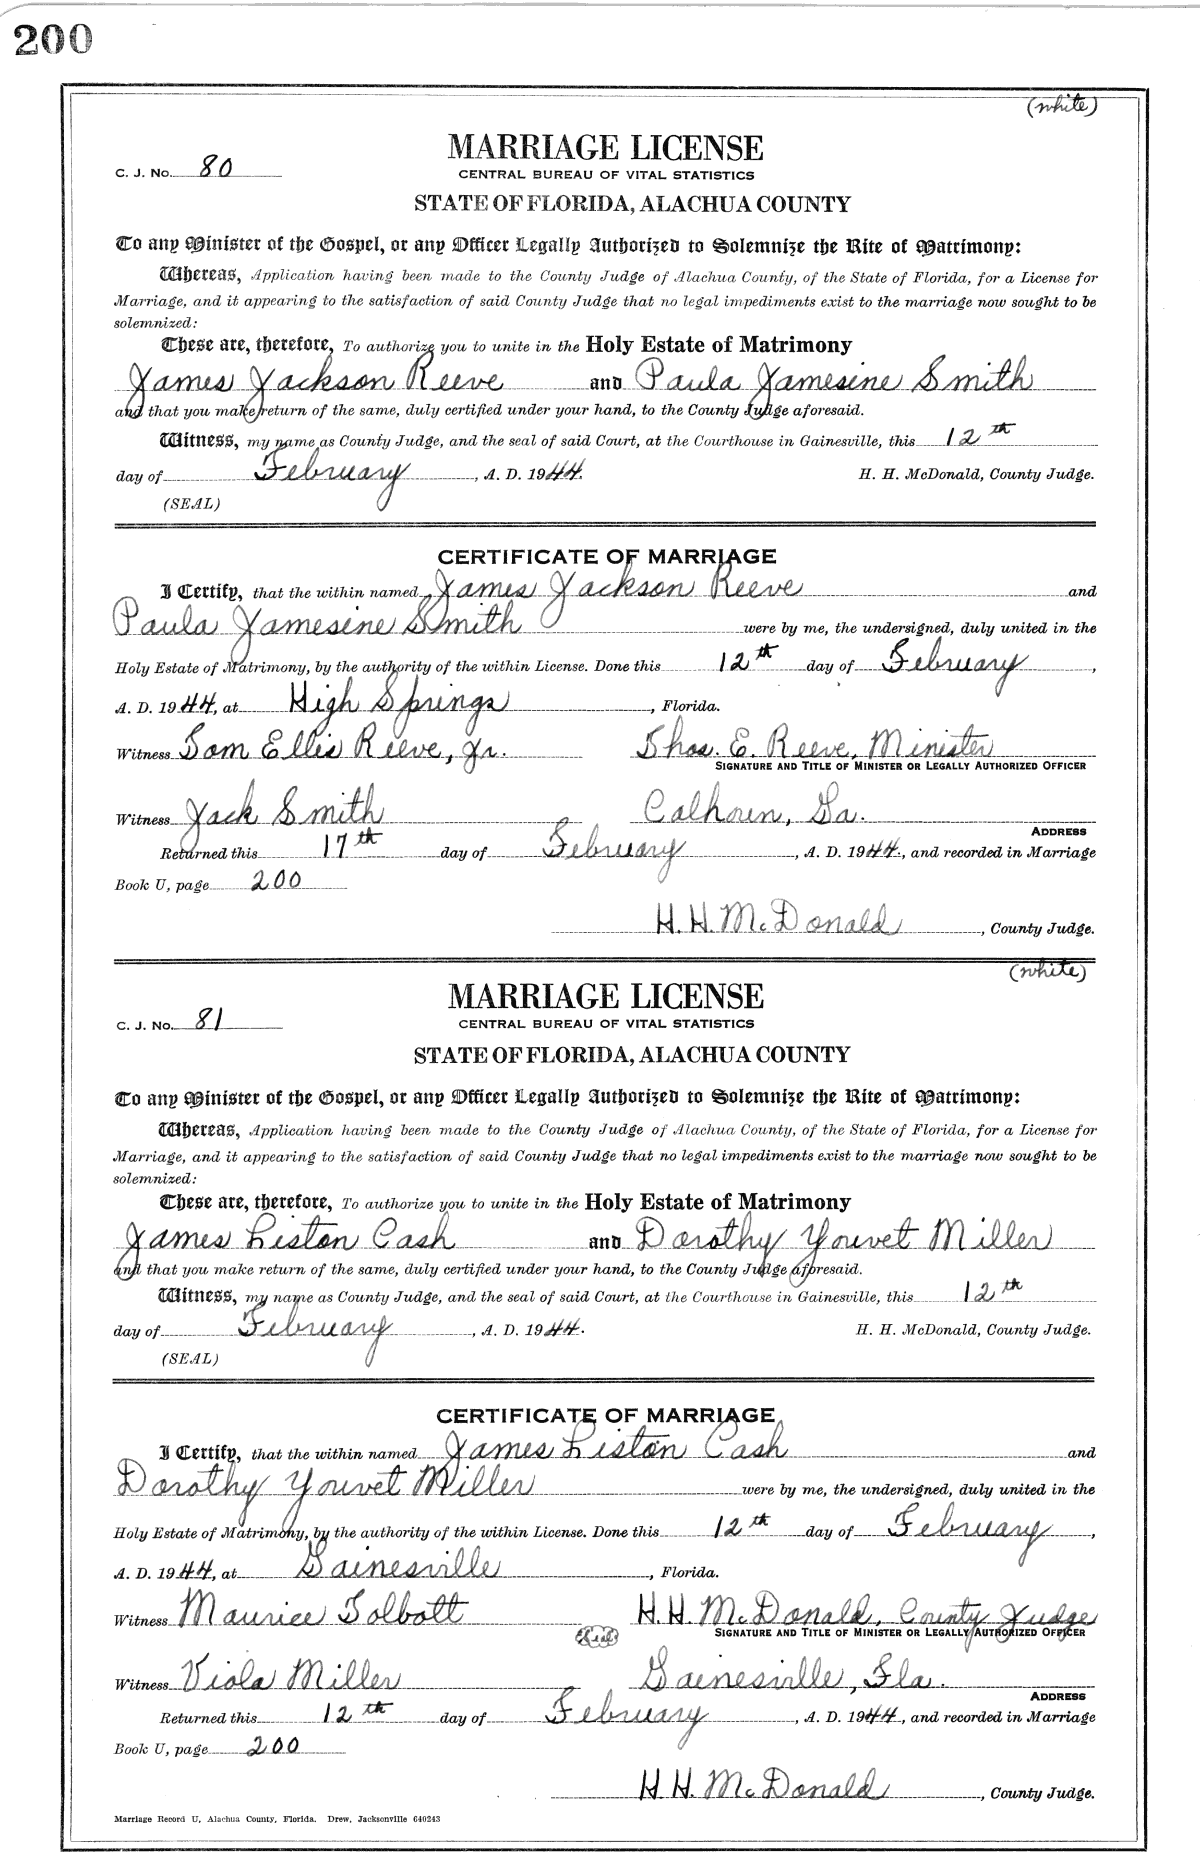 200
(white)
MARRIAGE LICENSE
C. J. No. 80
CENTRAL BUREAU OF VITAL STATISTICS
STATE OF FLORIDA, ALACHUA COUNTY
To any Minister of the Gospel, or any Officer Legally Authorized to Solemnize the Rite of Matrimony:
Whereas, Application having been made to the County Judge of Alachua County, of the State of Florida, for a License for
Marriage, and it appearing to the satisfaction of said County Judge that no legal impediments exist to the marriage now sought to be
solemnized:
These are, therefore, To authorize you to unite in the Holy Estate of Matrimony
James Jackson Reeve and Paula Jamesine Smith
and that you make return of the same, duly certified under your hand, to the County Judge aforesaid.
Witness, my name as County Judge, and the seal of said Court, at the Courthouse in Gainesville, this 12th
day of February, A. D. 1944. H. H. McDonald, County Judge.
(SEAL)
CERTIFICATE OF MARRIAGE
I Certify, that the within named James Jackson Reeve and
Paula Jamesine Smith were by me, the undersigned, duly united in the
Holy Estate of Matrimony, by the authority of the within License. Done this 12th day of February,
A. D. 1944, at High Springs, Florida.
Witness Tom Ellis Reeve, Jr. Thos. E. Reeve, Minister
SIGNATURE AND TITLE OF MINISTER OR LEGALLY AUTHORIZED OFFICER
Witness Jack Smith Calhoun, Ga.
ADDRESS
Returned this 17th day of February, A. D. 1944, and recorded in Marriage
Book U, page 200
H. H. McDonald, County Judge.
(white)
MARRIAGE LICENSE
C. J. No. 81
CENTRAL BUREAU OF VITAL STATISTICS
STATE OF FLORIDA, ALACHUA COUNTY
To any Minister of the Gospel, or any Officer Legally Authorized to Solemnize the Rite of Matrimony:
Whereas, Application having been made to the County Judge of Alachua County, of the State of Florida, for a License for
Marriage, and it appearing to the satisfaction of said County Judge that no legal impediments exist to the marriage now sought to be
solemnized:
These are, therefore, To authorize you to unite in the Holy Estate of Matrimony
James Liston Cash and Dorothy Youvet Miller
and that you make return of the same, duly certified under your hand, to the County Judge aforesaid.
Witness, my name as County Judge, and the seal of said Court, at the Courthouse in Gainesville, this 12th
day of February, A. D. 1944. H. H. McDonald, County Judge.
(SEAL)
CERTIFICATE OF MARRIAGE
I Certify, that the within named James Liston Cash and
Dorothy Youvet Miller were by me, the undersigned, duly united in the
Holy Estate of Matrimony, by the authority of the within License. Done this 12th day of February,
A. D. 1944, at Gainesville, Florida.
Witness Maurice Tolbott H. H. McDonald, County Judge
(Seal) SIGNATURE AND TITLE OF MINISTER OR LEGALLY AUTHORIZED OFFICER
Witness Viola Miller Gainesville, Fla.
ADDRESS
Returned this 12th day of February, A. D. 1944, and recorded in Marriage
Book U, page 200
H. H. McDonald, County Judge.
Marriage Record U, Alachua County, Florida. Drew, Jacksonville 640243